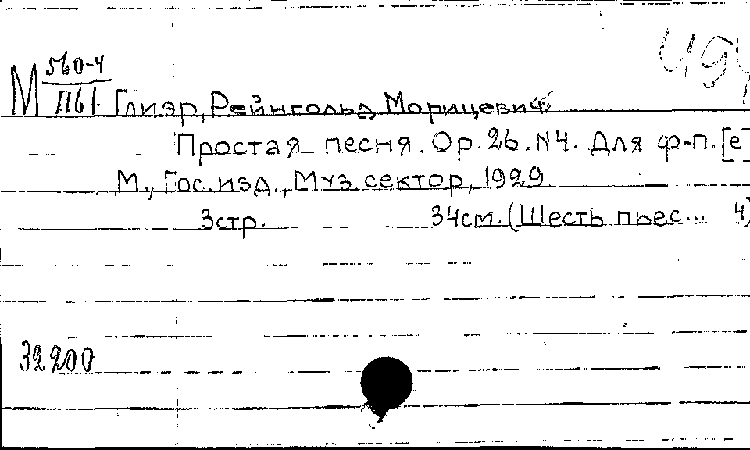 М 560-4
П61 Глиэр, Рейнгольд Морицевич
Простая песня. Op. 26. N4. Для ф-п. [е
М., Гос. изд., Муз. сектор, 1929
3стр. 34см. (Шесть пьес... 4)
32200